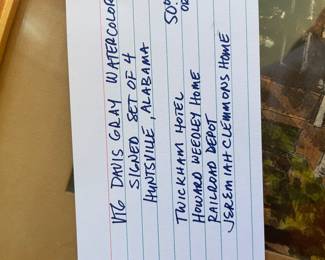 VTG DAVIS GRAY WATERCOLOR
SIGNED SET OF 4
HUNTSVILLE, ALABAMA
50.
OR
TWICKHAM HOTEL
HOWARD WEEDLEY HOME
RAILROAD DEPOT
JEREMIAH CLEMMONS HOME